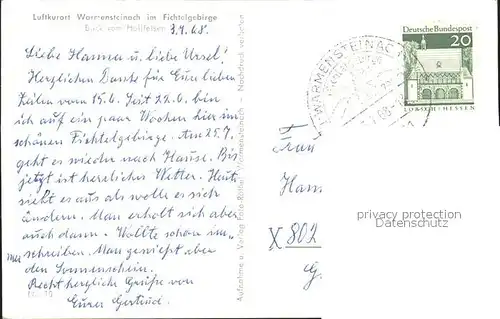 Luftkurort Warmensteinach im Fichtelgebirge
Blick vom
3.7.68.
Liebe Hanna u. liebe Ursel!
Herzlichen Dank für Eure lieben
Zeilen vom 15.6. Seit 22.6. bin
ich auf ein paar Wochen hier im
schönen Fichtelgebirge. Am 25.7.
geht es wieder nach Hause. Bis
jetzt ist herrliches Wetter. Heute
sieht es aus als wolle es sich
ändern. Man erholt sich aber
auch dann. Wollte schon im
schreiben. Man genießt eben
den Sonnenschein.
Recht herzliche Grüße von
Eurer Gertrud.
Aufnahme u. Verlag Warmensteinach - Nachdruck verboten
WARMENSTEINACH
Deutsche Bundespost
20
LORSCH/HESSEN
Frau
Ham
X 802
privacy protection
Datenschutz